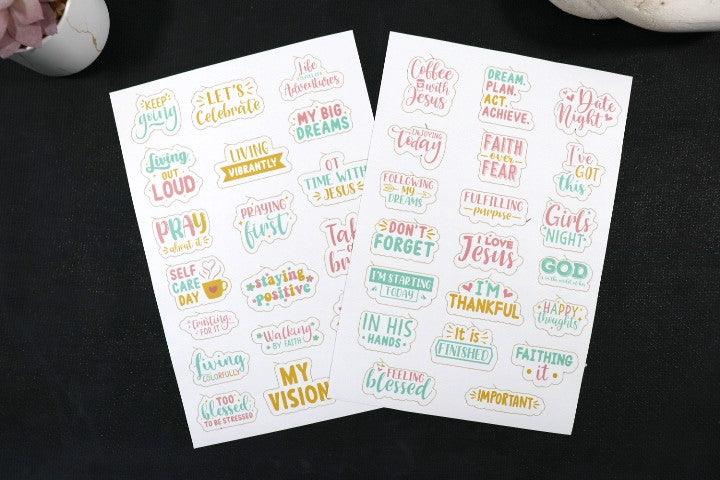 KEEP
going
LET'S
Celebrate
Life
Adventures
MY BIG
DREAMS
Living
OUT
LOUD
LIVING
VIBRANTLY
OT
TIME WITH
JESUS
PRAY
about it
PRAYING
first
SELF
CARE
DAY
staying
positive
Trusting
FOR IT
Walking
BY FAITH
living
COLORFULLY
MY
VISION
TOO
blessed
TO BE STRESSED
Coffee
with
Jesus
DREAM.
PLAN.
ACT.
ACHIEVE.
Date
Night
ENJOYING
Today
FAITH
over
FEAR
I've
GOT
this
FOLLOWING
MY
DREAMS
FULFILLING
purpose
Girls
NIGHT
DON'T
FORGET
I LOVE
Jesus
GOD
I'M STARTING
TODAY
I'M
THANKFUL
HAPPY
thoughts
IN HIS
HANDS
It is
FINISHED
FAITHING
it
FEELING
blessed
IMPORTANT